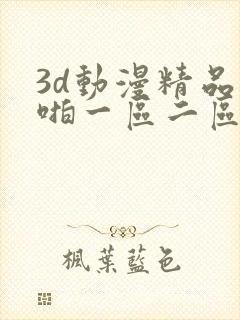 3d動漫精品
啪一區二區
楓葉藍色